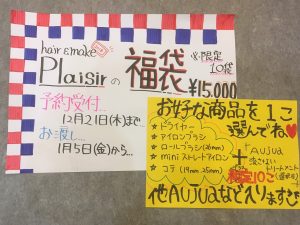 hair & make
Plaisirの
福袋
限定
10袋
¥15,000
予約受付...
12月21日(木)まで
お渡し...
1月5日(金)から...
お好な商品を1こ
選んでね♥
★ ドライヤー
★ アイロンブラシ
★ ロールブラシ(26mm)
★ miniストレートアイロン
★ コテ
+
AUJUA
洗さない
トリートメント
限定10こ
他AUJUAなど入ります